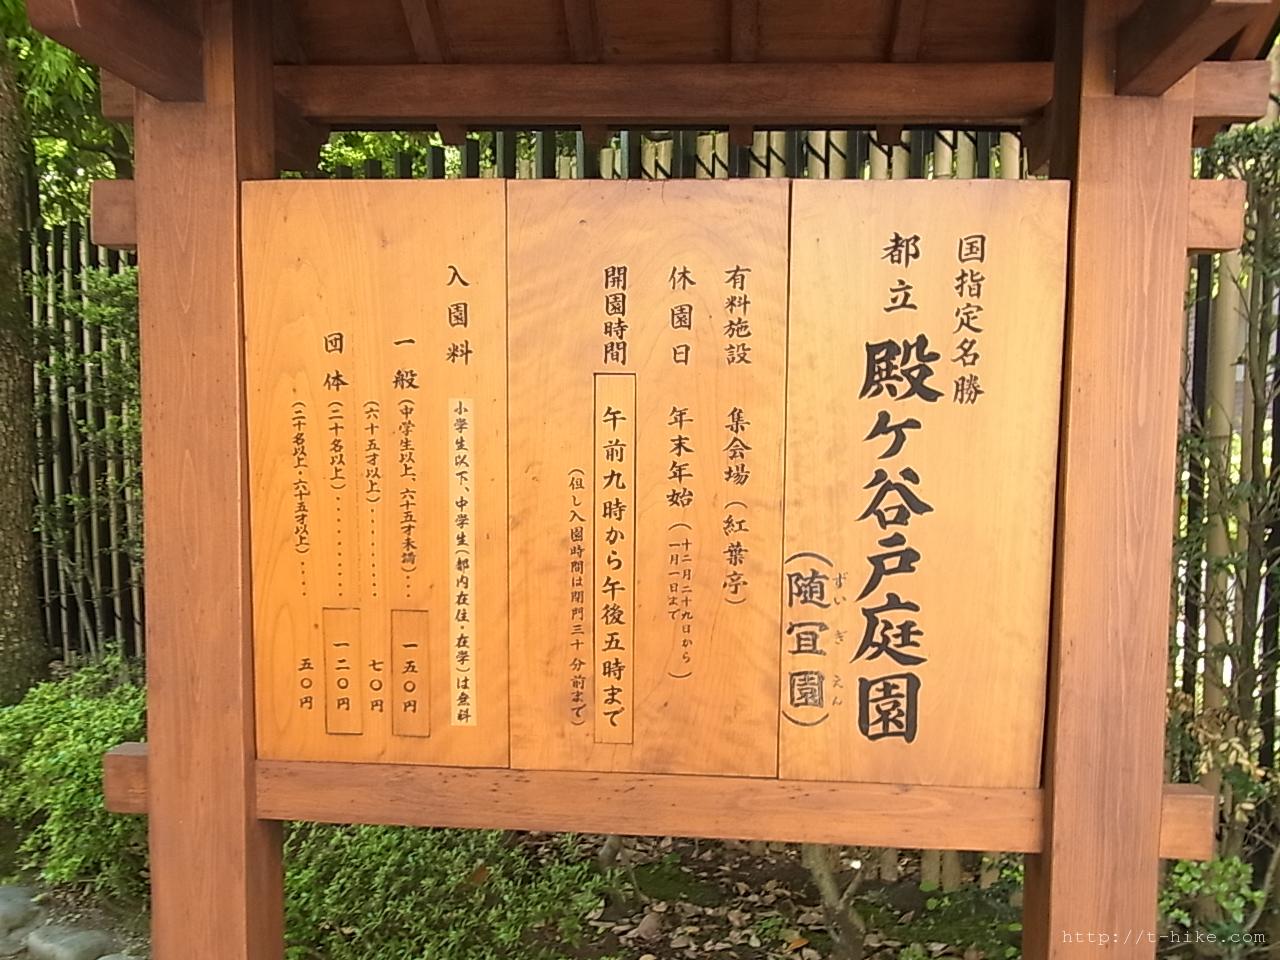 国指定名勝
都立 殿ヶ谷戸庭園
ずい ぎ えん
(随冝園)
有料施設 集会場(紅葉亭)
休園日 年末年始(十二月二十九日から
一月一日まで)
開園時間 午前九時から午後五時まで
(但し入園時間は閉門三十分前まで)
入園料 小学生以下、中学生(都内在住・在学)は無料
一般(中学生以上、六十五才未満)・・・一五〇円
(六十五才以上)・・・・・・・・七〇円
団体(二十名以上)・・・・・・・・一二〇円
(二十名以上・六十五才以上)・・・・五〇円
http://t-hike.com